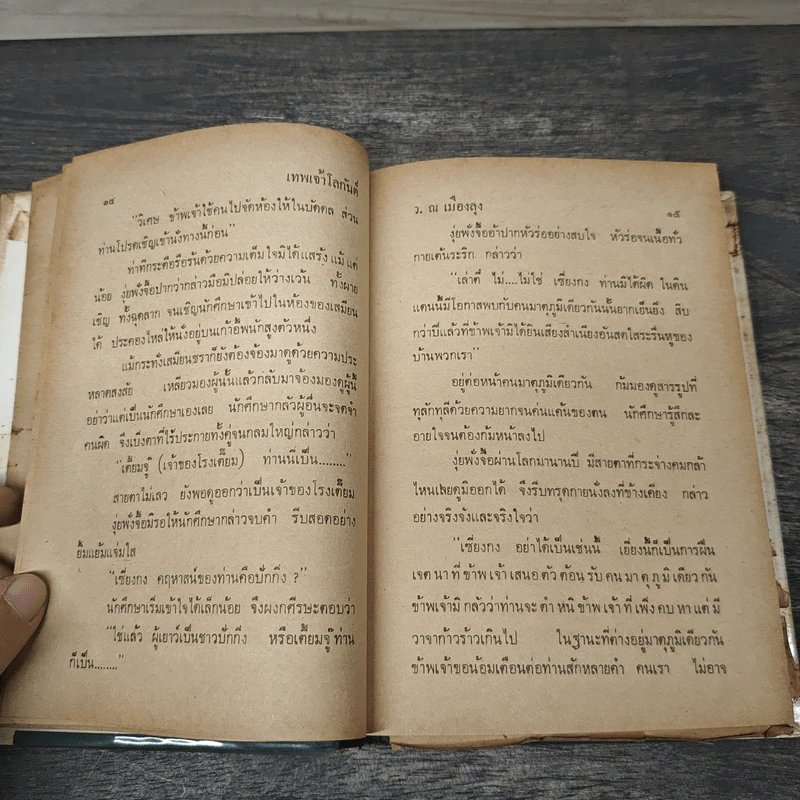 ๑๔
เทพเจ้าโลกันต์
“วิเศษ ข้าพเจ้าใช้คนไปจัดห้องให้ในบัดดล ส่วน
ท่านโปรดเชิญเข้านั่งทางนี้ก่อน”
ท่าทีกระตือรือร้นด้วยความเต็มใจมิได้แสร้ง แม้แต่
น้อย งุ่ยพั่งจื้อปากว่ากล่าวมือมิปล่อยให้ว่างเว้น ทั้งผาย
เชิญ ทั้งฉุดลาก จนเชิญนักศึกษาเข้าไปในห้องของเสมียน
ได้ ประคองไหล่ให้นั่งอยู่บนเก้าอี้พนักสูงตัวหนึ่ง
แม้กระทั่งเสมียนชราก็ยังต้องจ้องมาดูด้วยความประ
หลาดสงสัย เหลียวมองผู้นั้นแล้วกลับมาจ้องมองดูผู้นี้
อย่าว่าแต่เป็นนักศึกษาเองเลย นักศึกษากลัวผู้อื่นจะจดจำ
คนผิด จึงเบิ่งตาที่ไร้ประกายทั้งคู่จนกลมใหญ่กล่าวว่า
“เตี้ยมจู๊ (เจ้าของโรงเตี๊ยม) ท่านนี่เป็น........”
สายตาไม่เลว ยังพอดูออกว่าเป็นเจ้าของโรงเตี๊ยม
งุ่ยพั่งจื้อมิรอให้นักศึกษากล่าวจบคำ รีบสอดอย่าง
ยิ้มแย้มแจ่มใส
“เซี่ยงกง คฤหาสน์ของท่านคือปักกิ่ง ?”
นักศึกษาเริ่มเข้าใจได้เล็กน้อย จึงผงกศีรษะตอบว่า
“ใช่แล้ว ผู้เยาว์เป็นชาวปักกิ่ง หรือเตี้ยมจู๊ท่าน
ก็เป็น........”
ว. ณ เมืองลุง
๑๕
งุ่ยพั่งจื้ออ้าปากหัวร่ออย่างสบใจ หัวร่อจนเนื้อทั่ว
กายเต้นระริก กล่าวว่า
“เล่าตี๋ ไม่....ไม่ใช่ เซี่ยงกง ท่านมิได้ผิด ในดิน
แดนนี้มีโอกาสพบกับคนมาตุภูมิเดียวกันนั้นยากเย็นยิ่ง สิบ
กว่าปีแล้วที่ข้าพเจ้ามิได้ยินเสียงสำเนียงอันสดใสระรื่นหูของ
บ้านพวกเรา”
อยู่ต่อหน้าคนมาตุภูมิเดียวกัน ก้มมองดูสารรูปที่
ทุลักทุลีด้วยความยากจนค่นแค้นของตน นักศึกษารู้สึกละ
อายใจจนต้องก้มหน้าลงไป
งุ่ยพั่งจื้อผ่านโลกมานานปี มีสายตาที่กระจ่างคมกล้า
ไหนเลยดูมิออกได้ จึงรีบทรุดกายนั่งลงที่ข้างเคียง กล่าว
อย่างจริงจังและจริงใจว่า
“เซี่ยงกง อย่าได้เป็นเช่นนี้ เยี่ยงนี้ก็เป็นการฝืน
เจตนาที่ข้าพเจ้าเสนอตัวต้อนรับคนมาตุภูมิเดียวกัน
ข้าพเจ้ามิกลัวว่าท่านจะตำหนิข้าพเจ้าที่เพิ่งคบหาแต่มี
วาจาก้าวร้าวเกินไป ในฐานะที่ต่างอยู่มาตุภูมิเดียวกัน
ข้าพเจ้าขอน้อมเตือนต่อท่านสักหลายคำ คนเรา ไม่อาจ